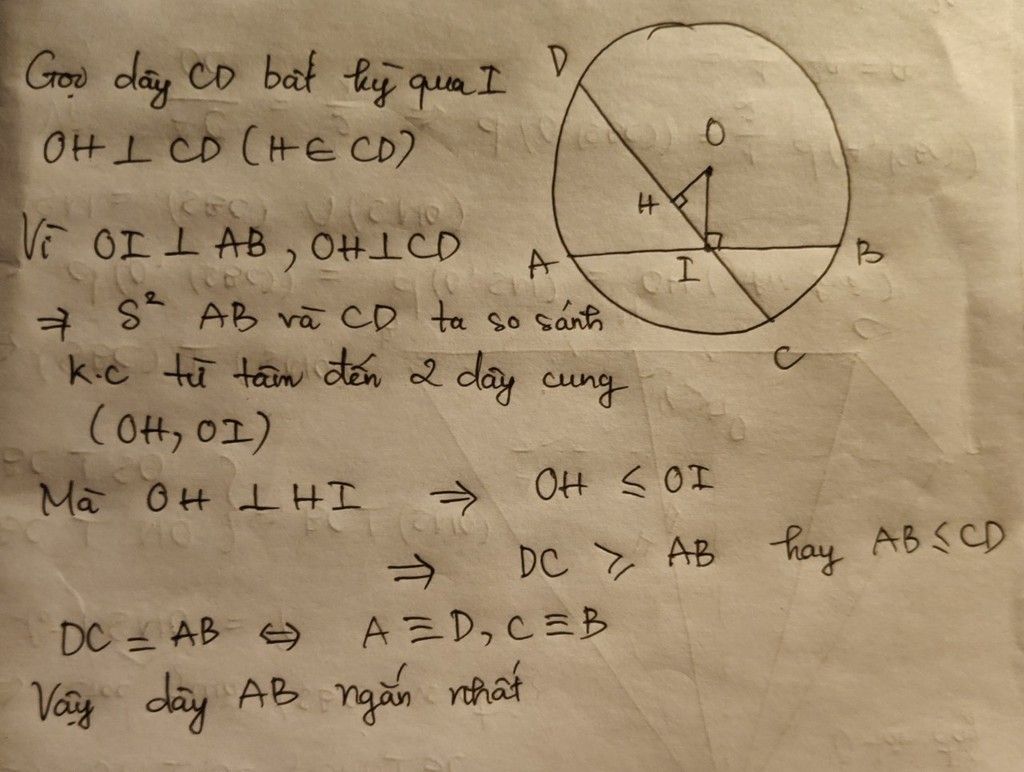 Gọi dây CD bất kỳ qua I
OH ⊥ CD (H ∈ CD)
Vì OI ⊥ AB, OH ⊥ CD
⇒ S² AB và CD ta so sánh
k.c từ tâm đến 2 dây cung
(OH, OI)
Mà OH ⊥ HI ⇒ OH ≤ OI
⇒ DC ≥ AB hay AB ≤ CD
DC = AB ⇔ A ≡ D, C ≡ B
Vậy dây AB ngắn nhất
D
O
H
A
I
B
C